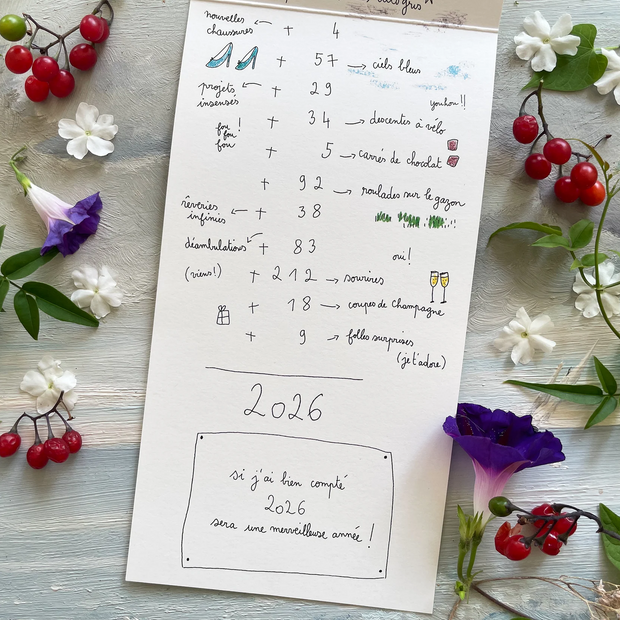 nouvelles chaussures ← + 4
+ 57 → ciels bleus
projets insensés ← + 29
youhou!!
+ 34 → descentes à vélo
fou! fou fou
+ 5 → carrés de chocolat
+ 92 → roulades sur le gazon
rêveries infinies ← + 38
déambulations ← + 83
oui!
(viens!) + 212 → sourires
+ 18 → coupes de champagne
+ 9 → folles surprises
(je t'adore)
2026
si j'ai bien compté
2026
sera une merveilleuse année !